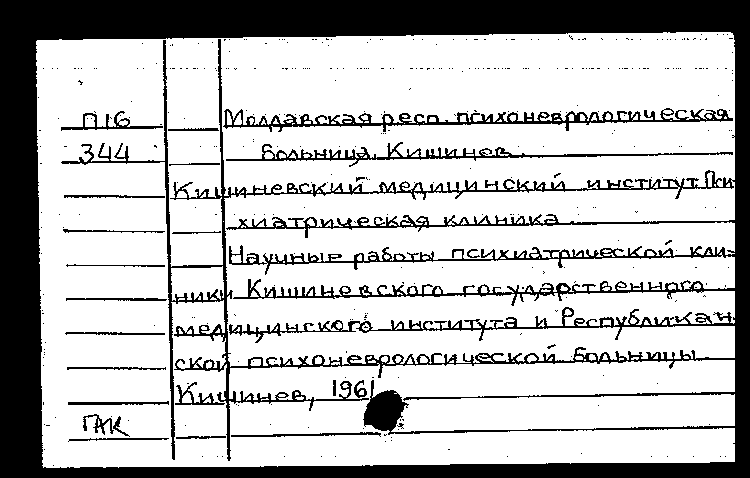 П16 Молдавская респ. психоневрологическая
344 больница. Кишинев.
Кишиневский медицинский институт. Пси-
хиатрическая клиника
Научные работы психиатрической кли-
ники Кишиневского государственного
медицинского института и Республикан-
ской психоневрологической больницы.
Кишинев, 1961
ГАК